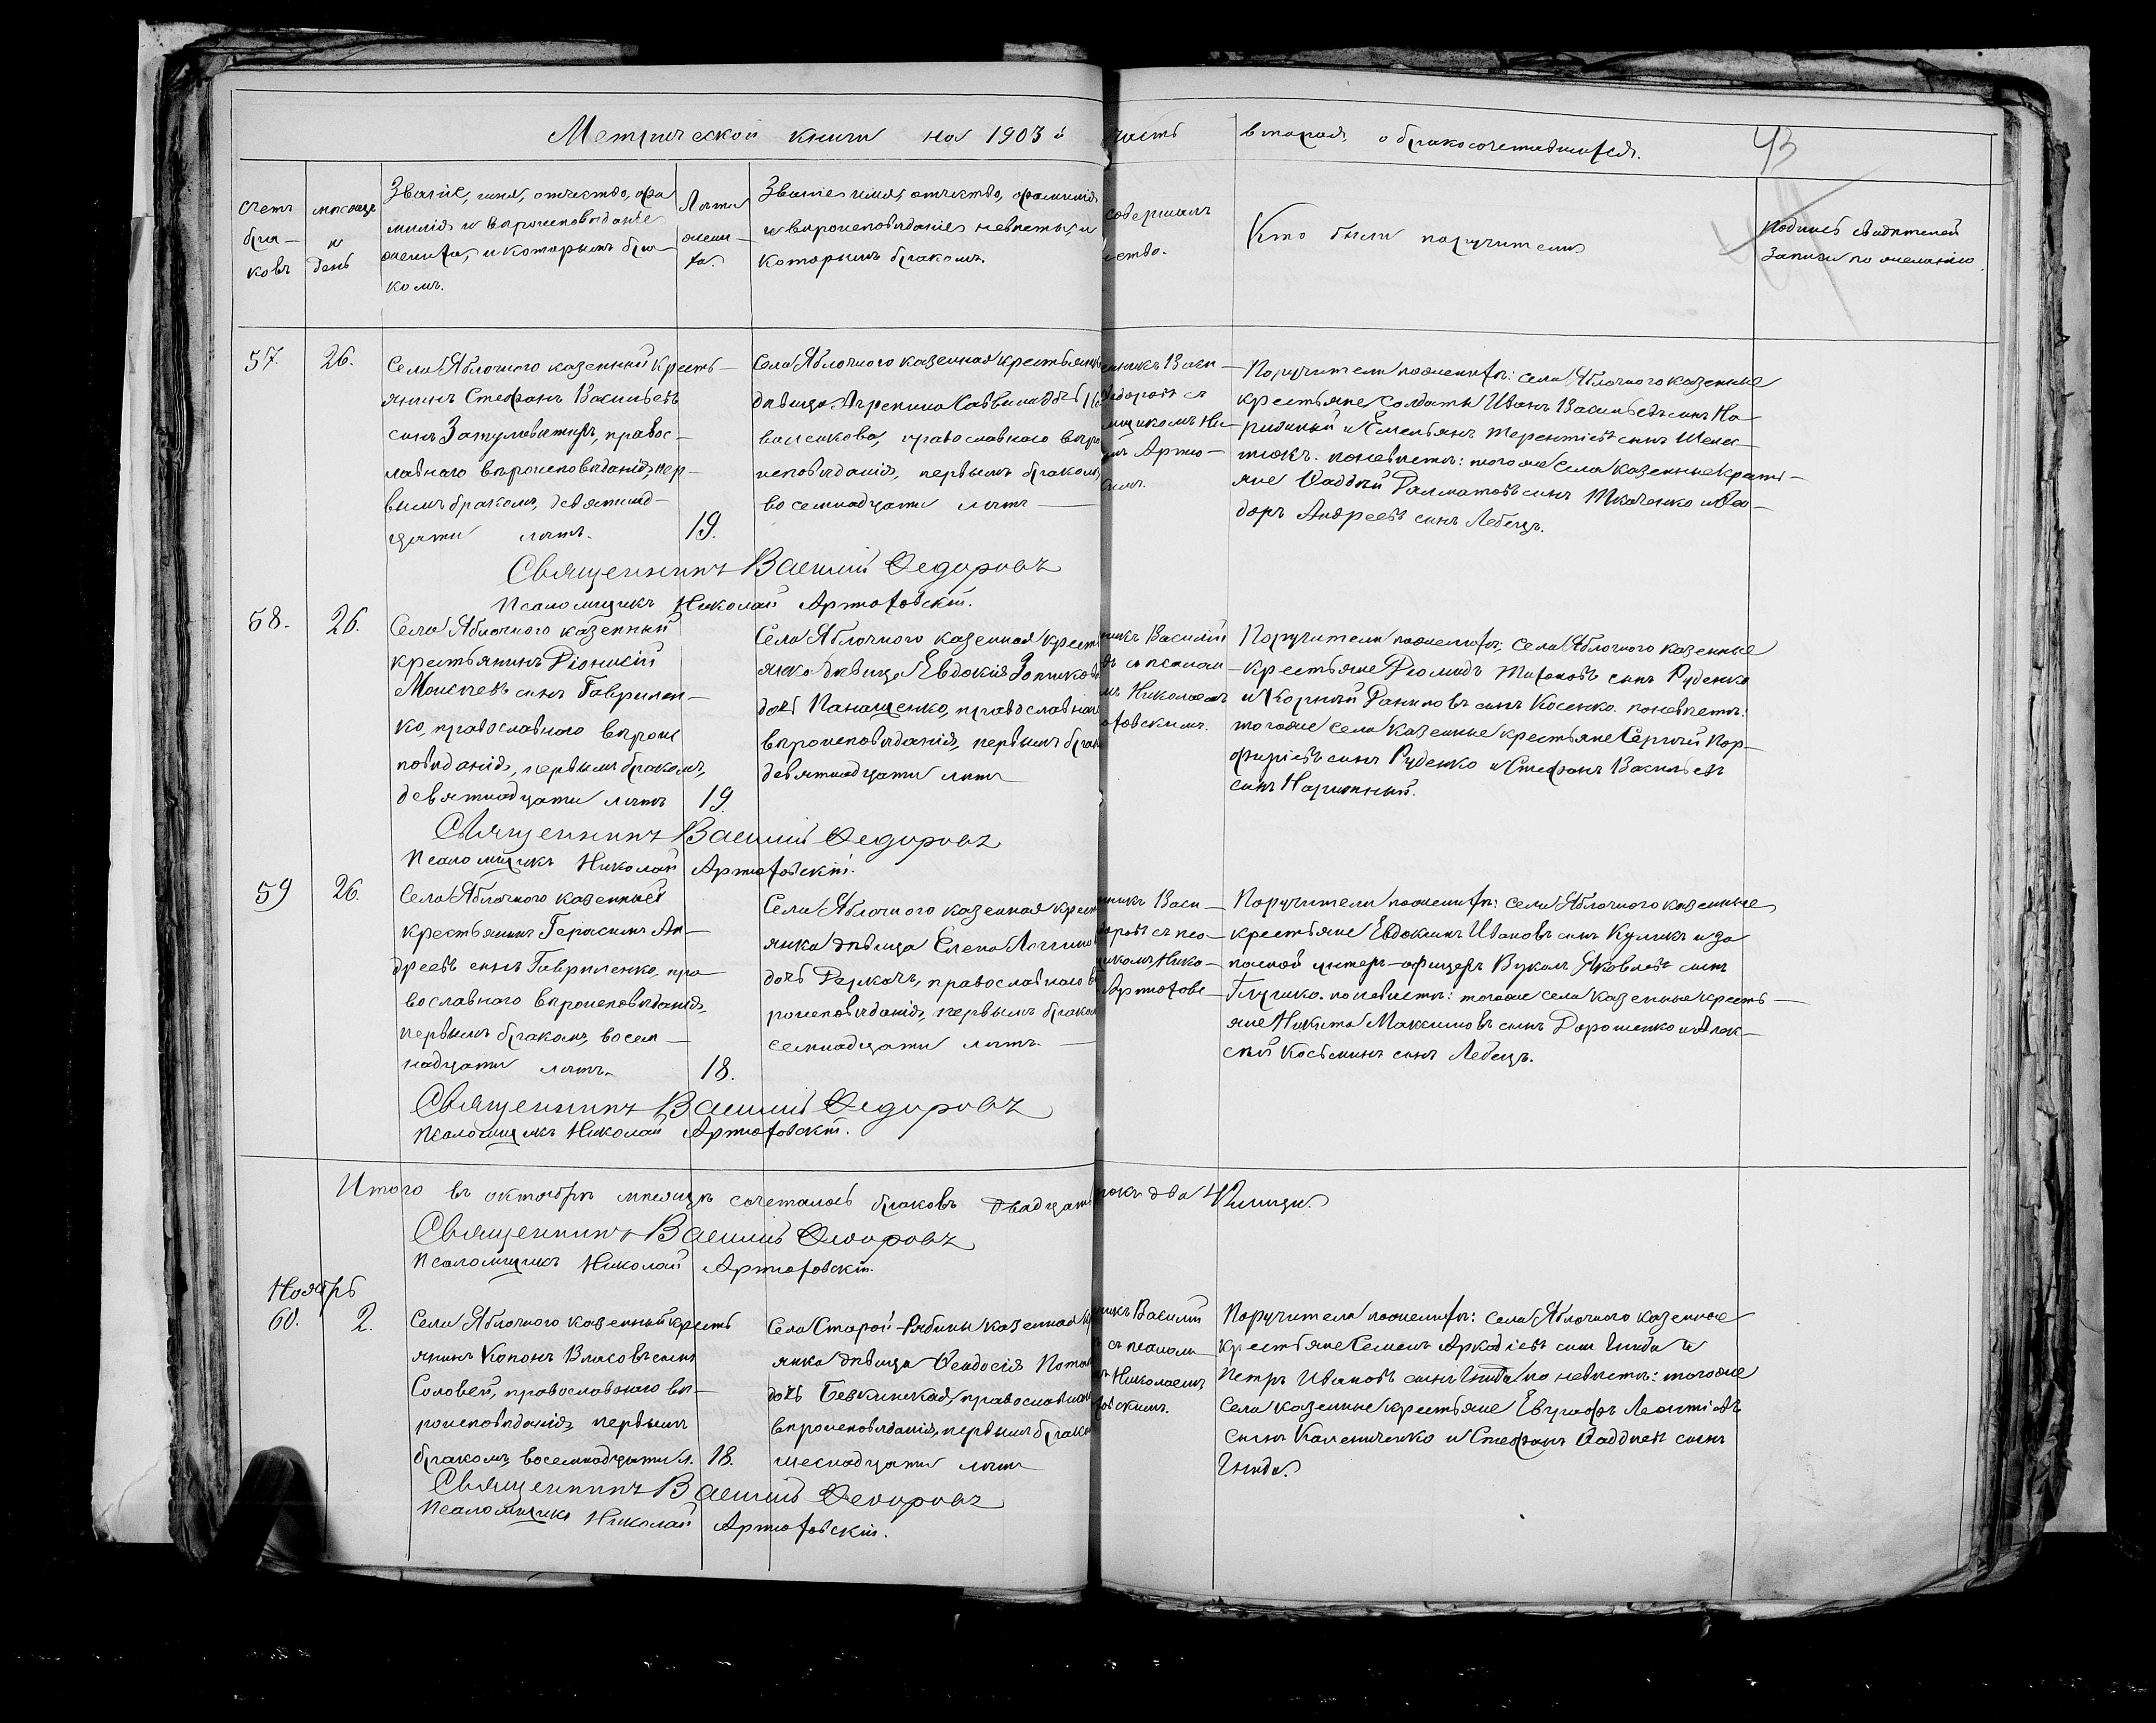 Метрической книги на 1903 й часть вторая, о бракосочетавшихся.
43
Счетъ
бра-
ковъ
мѣсяцъ
и
день
Званіе, имя, отчество, фа
милія и вѣроисповѣданіе
жениха, и которымъ бра-
комъ.
Лѣта
жени-
ха.
Званіе, имя, отчество, фамилія
и вѣроисповѣданіе невѣсты, и
которымъ бракомъ.
Кто были поручители
Подпись свидѣтелей
записи по желанію
57. 26.
Села Яблочного казенный кресть-
янинъ Стефанъ Васильевъ
сынъ, правос-
лавнаго вѣроисповѣданія, пер-
вымъ бракомъ, девятнад-
цати лѣтъ.
19.
Села Яблочного казенная крестьянк
дѣвица
православнаго вѣро
исповѣданія, первымъ бракомъ,
восемнадцати лѣтъ
никъ Васи-
едоровъ съ
мщикомъ Ни-
мъ Артю-
Поручители по женихѣ: села Яблочного казенные
крестьяне солдаты Иванъ Васильевъ сынъ На-
рижный и Емельянъ Терентіевъ сынъ Шелес-
тюкъ. по невѣстѣ: того же села казенные кресть-
яне Фаддѣй Далматовъ сынъ Ткаченко и Фео-
доръ Андреевъ сынъ Лебецъ.
Священникъ Василій Федоровъ
Псаломщикъ Николай Артюховскій.
58. 26.
Села Яблочного казенный
крестьянинъ Діонисій
Моисѣевъ сынъ Гаврилен-
ко, православнаго вѣроис
повѣданія, первымъ бракомъ,
девятнадцати лѣтъ
19.
Села Яблочного казенная кресть
янка дѣвица Евдокія Зотикова
дочь Панащенко, православнаго
вѣроисповѣданія, первымъ брак
девятнадцати лѣтъ
никъ Василій
въ съ псалом
мъ Николаемъ
ховскимъ.
Поручители по женихѣ: села Яблочного казенные
крестьяне Діомидъ Тихоновъ сынъ Руденко
и Корнѣй Даниловъ сынъ Косенко. по невѣстѣ:
того же села казенные крестьяне Сергѣй Пор-
фиріевъ сынъ Руденко и Стефанъ Васильевъ
сынъ Нарижный.
Священникъ Василій Федоровъ
Псаломщикъ Николай Артюховскій.
59 26.
Села Яблочного казенный
крестьянинъ Герасимъ Ан-
дреевъ сынъ Гавриленко, пра-
вославнаго вѣроисповѣданія,
первымъ бракомъ, восем-
надцати лѣтъ.
18.
Села Яблочного казенная крест
янка дѣвица Елена Логгино
дочь Деркачъ, православнаго вѣ
роисповѣданія, первымъ браком
семнадцати лѣтъ.
нникъ Васи-
доровъ съ пса-
щикомъ Нико-
Артюховс-
Поручители по женихѣ: села Яблочного казенные
крестьяне Евдокимъ Ивановъ сынъ Куликъ и за
пасной унтеръ-офицеръ Вуколъ Яковлевъ сынъ
Глушко. по невѣстѣ: того же села казенные кресть-
яне Никита Максимовъ сынъ Дорошенко и Алек-
сѣй Косьминъ сынъ Лебецъ.
Священникъ Василій Федоровъ
Псаломщикъ Николай Артюховскій.
Итого въ октябрѣ мѣсяцѣ сочеталось браковъ двадцать
Священникъ Василій Федоровъ
Псаломщикъ Николай Артюховскій.
Ноябрь
60. 2.
Села Яблочного казенный кресть
янинъ Кононъ Власовъ сынъ
Соловей, православнаго вѣ-
роисповѣданія, первымъ
бракомъ, восемнадцати л.
18.
Села Старой-Рябины казенная кр
янка дѣвица Феодосія Потап
дочь, православнаго
вѣроисповѣданія, первымъ брако
шеснадцати лѣтъ
никъ Василій
съ псалом
мъ Николаемъ
ховскимъ.
Поручители по женихѣ: села Яблочного казенные
крестьяне Семенъ Аркадіевъ сынъ Гнида и
Петръ Ивановъ сынъ Гнида, по невѣстѣ: того же
села казенные крестьяне Евграфъ Леонтіевъ
сынъ Калениченко и Стефанъ Фаддѣевъ сынъ
Гнида.
Священникъ Василій Федоровъ
Псаломщикъ Николай Артюховскій.